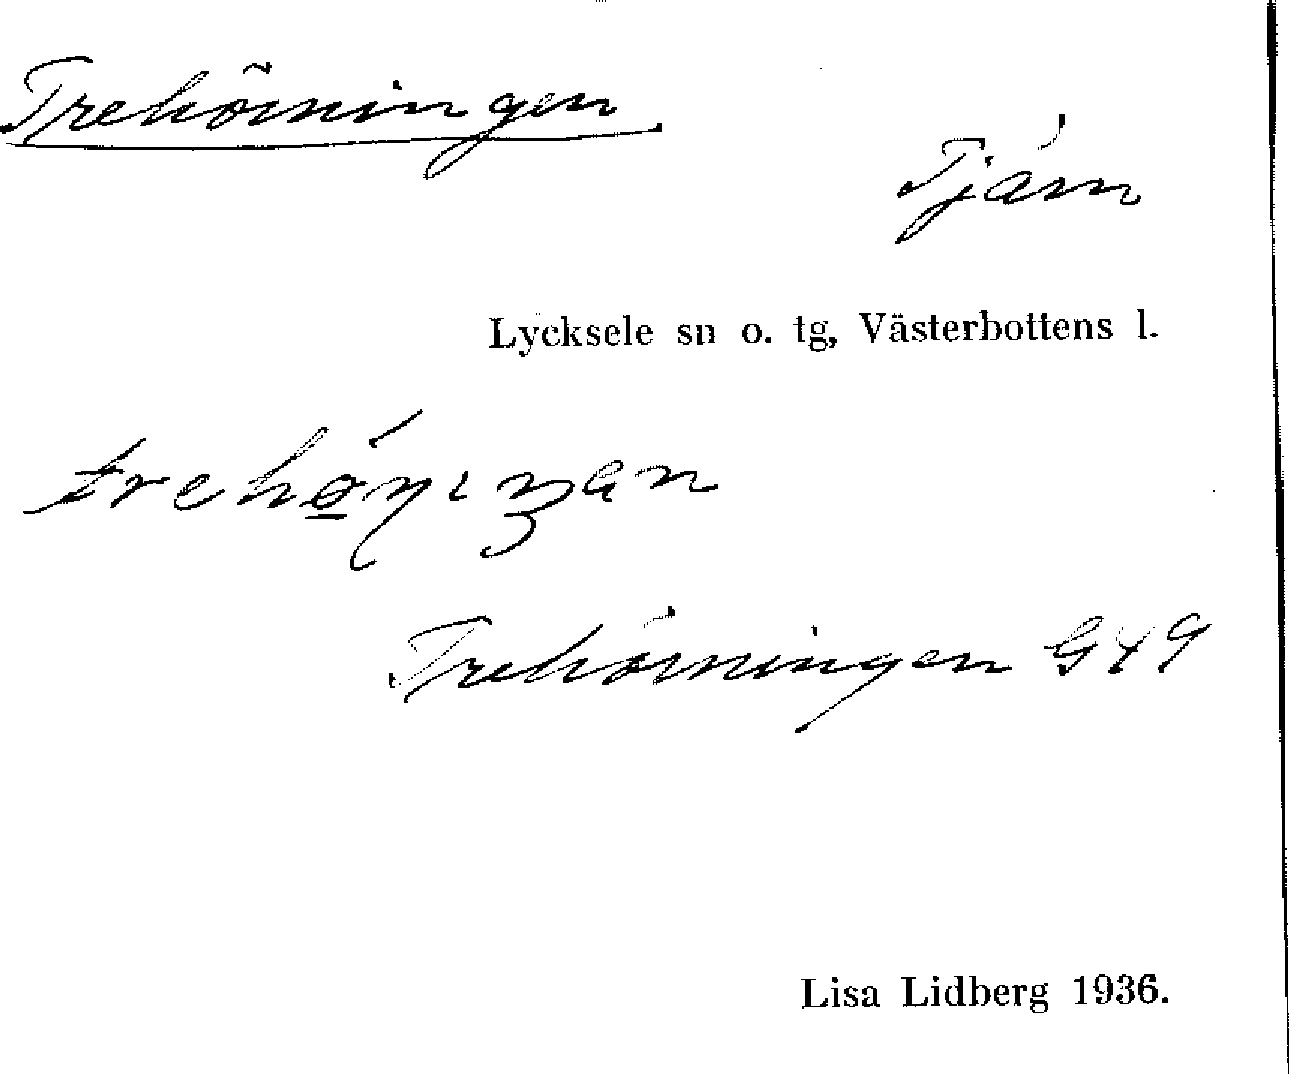 Trehörningen
Tjärn
Lycksele sn o. tg, Västerbottens l.
Trehörningen G49
Lisa Lidberg 1936.